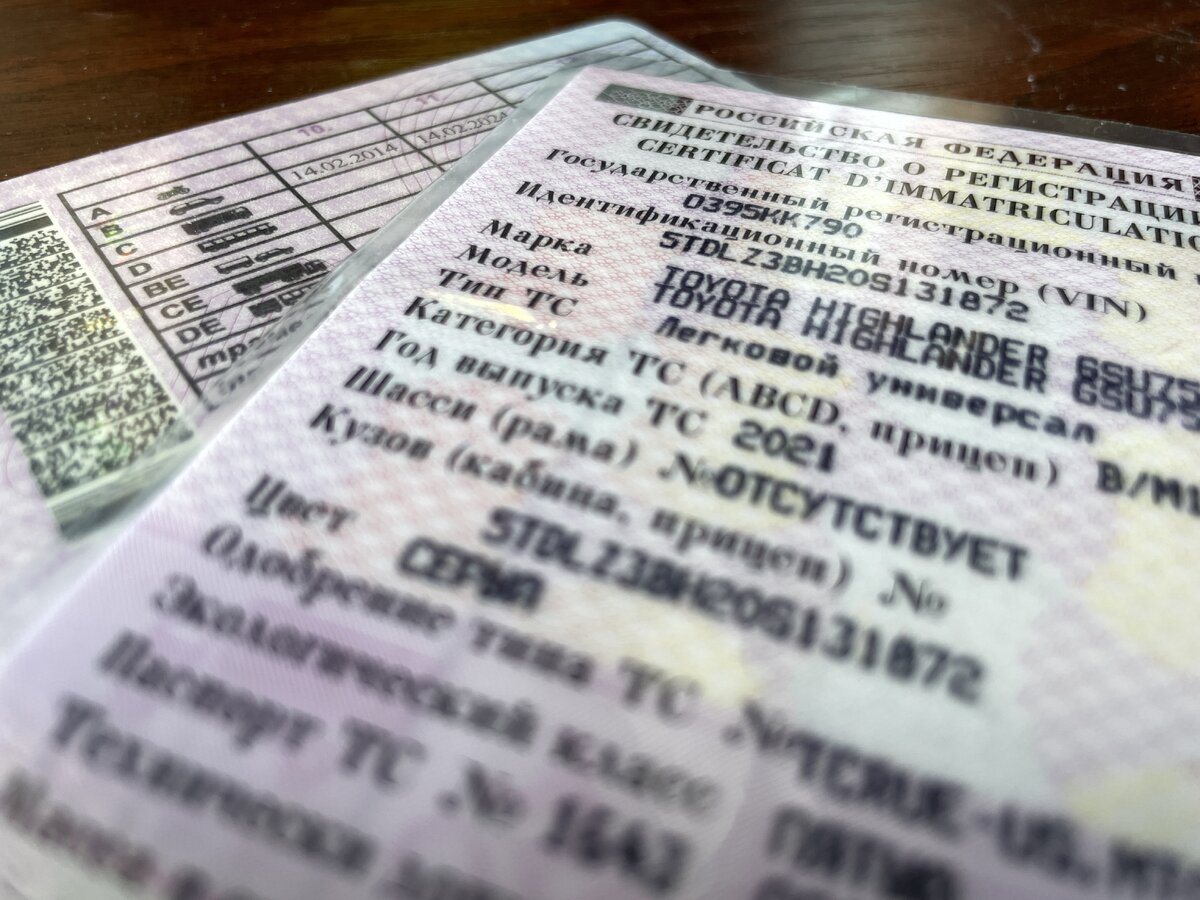 10.
11.
A
B 14.02.2014 14.02.2024
C
D
BE
CE
DE
РОССИЙСКАЯ ФЕДЕРАЦИЯ
СВИДЕТЕЛЬСТВО О РЕГИСТРАЦИИ
CERTIFICAT D'IMMATRICULATIO
Государственный регистрационный
О395КК790
Идентификационный номер (VIN)
5TDLZ3BH20S131872
Марка TOYOTA HIGHLANDER GSU75
Модель TOYOTA HIGHLANDER GSU75
Тип ТС Легковой универсал
Категория ТС (ABCD, прицеп) B/M1
Год выпуска ТС 2021
Шасси (рама) №ОТСУТСТВУЕТ
Кузов (кабина, прицеп) №
5TDLZ3BH20S131872
Цвет СЕРЫЙ
Одобрение типа ТС №ТС
Экологический класс ПЯТЫЙ
Паспорт ТС № 1643
Технически
Масса